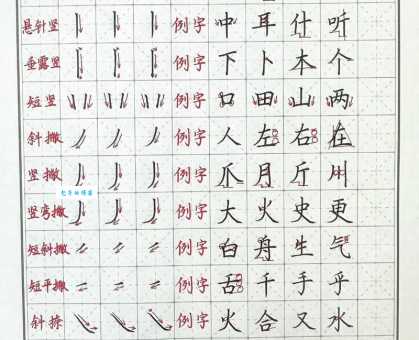 悬针竖 例字 中 耳 什 听
垂露竖 例字 下 卜 本 个
短竖 例字 口 田 山 两
斜撇 例字 人 左 右 在
竖撇 例字 爪 月 斤 州
竖弯撇 例字 大 火 史 更
短斜撇 例字 白 舟 生 气
短平撇 例字 舌 千 手 乎
斜捺 例字 火 合 又 水